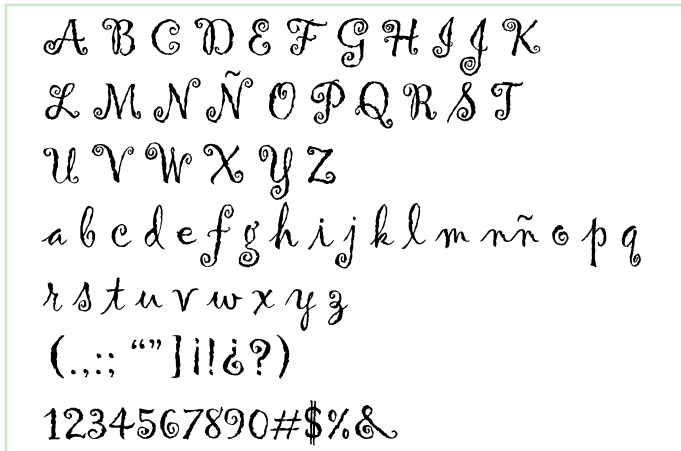 A B C D E F G H I J K
L M N Ñ O P Q R S T
U V W X Y Z
a b c d e f g h i j k l m n ñ o p q
r s t u v w x y z
(.,:; “” ] ¡!¿?)
1234567890#$%&